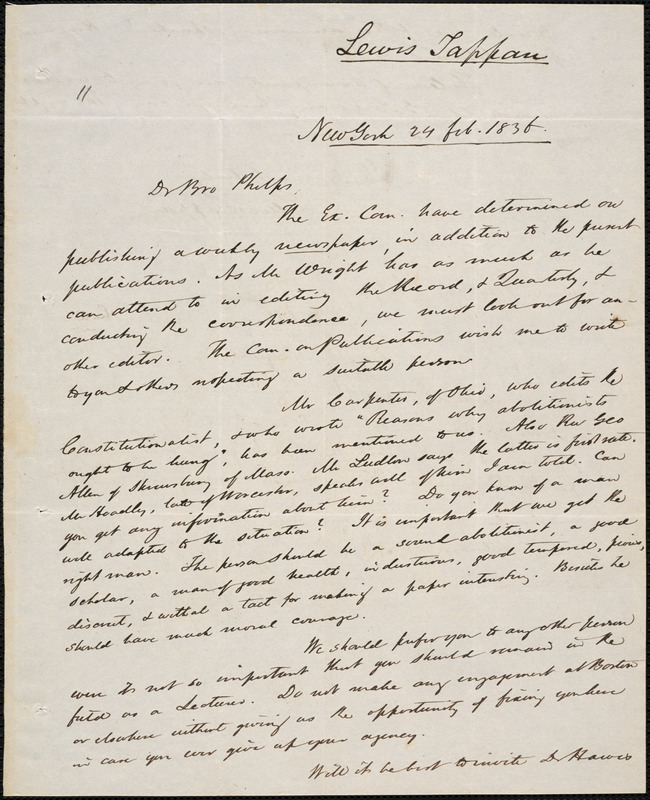 Lewis Tappan
11
New York 24 feb. 1836.
Dr Bro Phelps,
The Ex. Com. have determined on
publishing a weekly newspaper, in addition to the present
publications. As Mr Wright has as much as he
can attend to in editing the Record, & Quarterly, &
conducting the correspondence, we must look out for an-
other editor. The Com. on Publications wish me to write
to you & others respecting a suitable person.
Mr Carpenter, of Ohio, who edits the
Constitutionalist, & who wrote "Reasons why abolitionists
ought to be hung", has been mentioned to us. Also Rev Geo
Allen of Shrewsbury of Mass. Mr Ludlow says the latter is first rate.
Mr Hoadley, late of Worcester, speaks well of him I am told. Can
you get any information about him? Do you know of a man
well adapted to the situation? It is important that we get the
right man. The person should be a sound abolitionist, a good
scholar, a man of good health, industrious, good tempered, pious,
discreet, & withal a tact for making a paper interesting. Beside he
should have much moral courage.
We should prefer you to any other person
were it not so important that you should remain in the
field as a Lecturer. Do not make any engagement at Boston
or elsewhere without giving us the opportunity of fixing you here
in case you ever give up your agency.
Will it be best to invite Dr Hawes